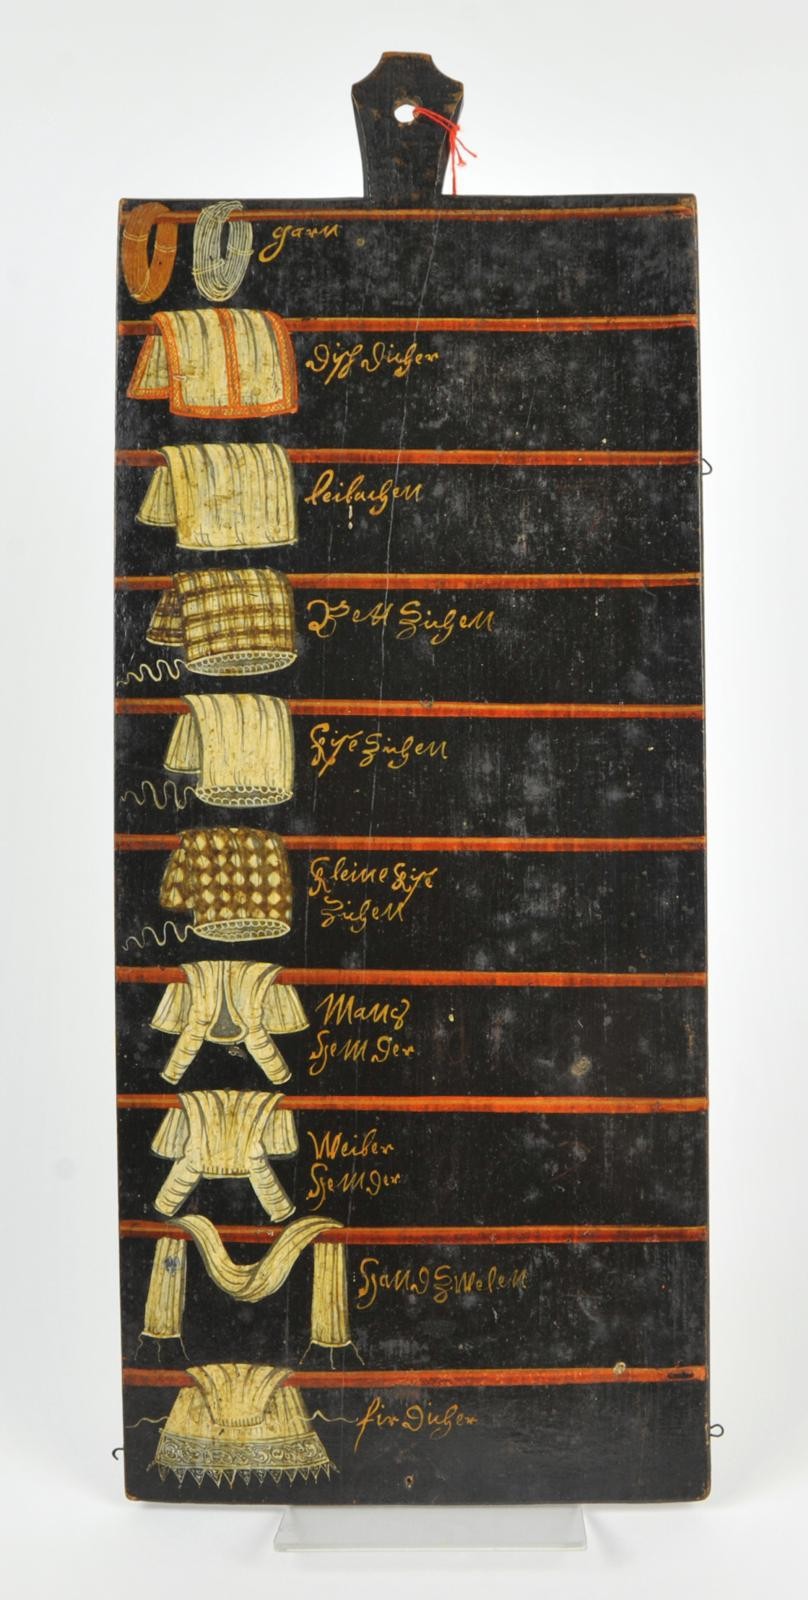 garn
Disch Dicher
leilachen
Bett Ziehen
Kise Ziehen
kleine Kise
Ziehen
Mans
Hemder
Weiber
Hemder
Hand Zwelen
fir Dicher